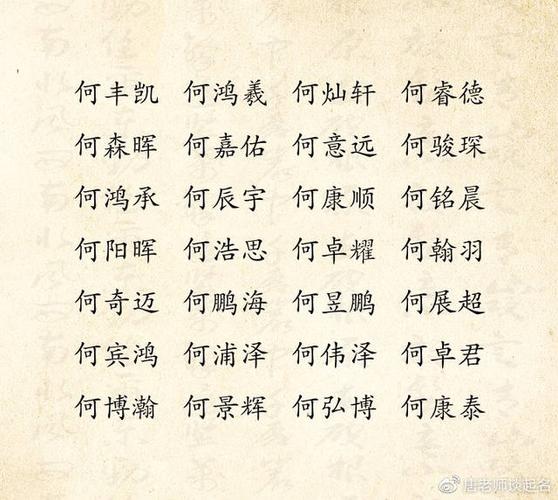 何丰凯 何鸿羲 何灿轩 何睿德
何森晖 何嘉佑 何意远 何骏琛
何鸿承 何辰宇 何康顺 何铭晨
何阳晖 何浩思 何卓耀 何翰羽
何奇迈 何鹏海 何昱鹏 何展超
何宾鸿 何浦泽 何伟泽 何卓君
何博瀚 何景辉 何弘博 何康泰
唐老师谈起名